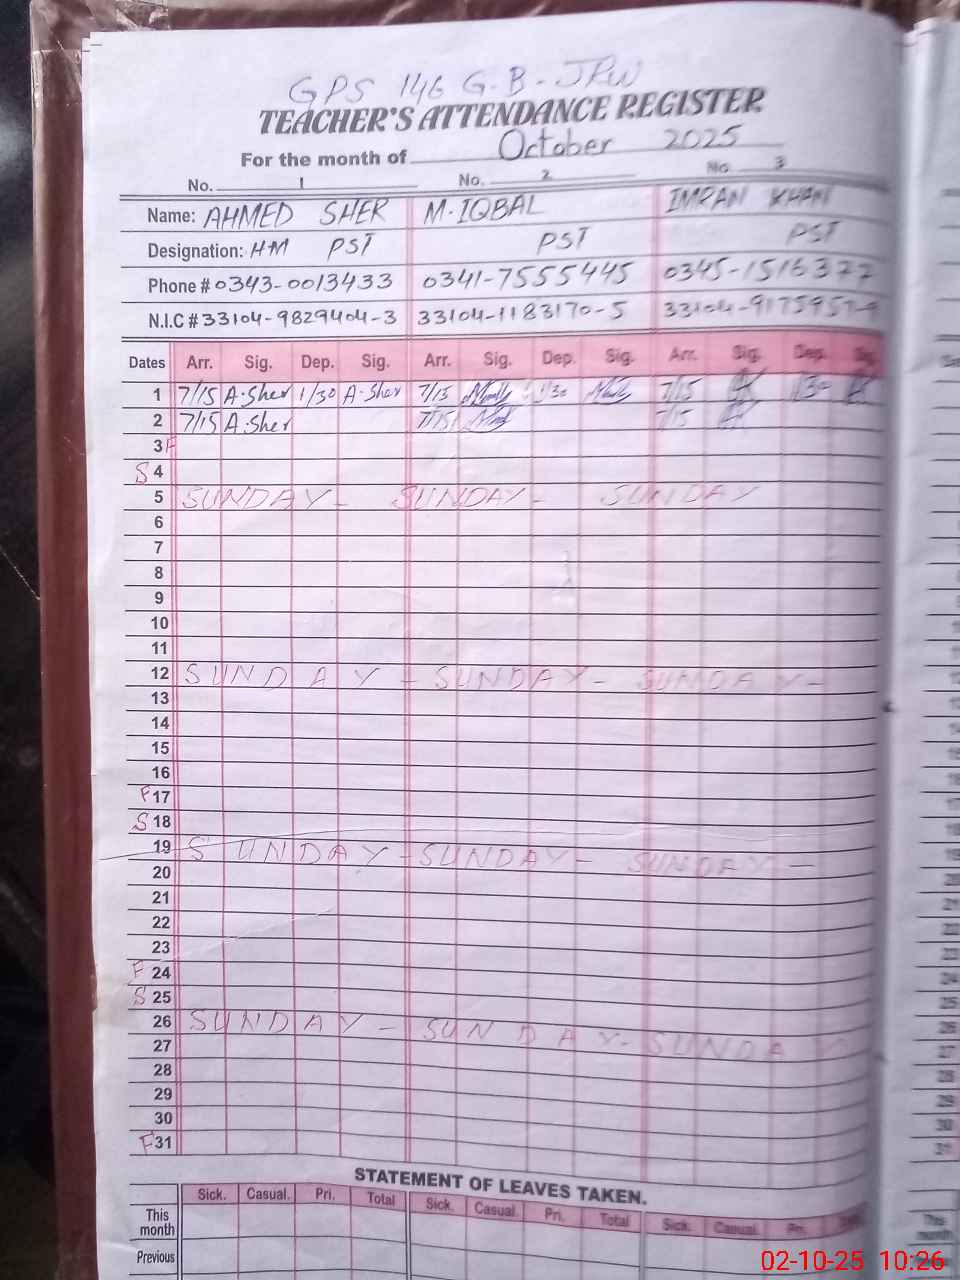 GPS 146 G.B-JRW
TEACHER'S ATTENDANCE REGISTER
For the month of October 2025
No. 1 No. 2 No 3
Name: AHMED SHER M.IQBAL IMRAN KHAN
Designation: HM PST PST PST
Phone # 0343-0013433 0341-7555445 0345-1516377
N.I.C # 33104-9829404-3 33104-1183170-5 33104-9175957-9
Dates Arr. Sig. Dep. Sig. Arr. Sig. Dep. Sig. Arr. Sig. Dep. Sig.
1 7/15 A.Sher 1/30 A.Sher 7/15 1/30 7/15 1/30
2 7/15 A.Sher 7/15 7/15
3 F
S 4
5 SUNDAY - SUNDAY - SUNDAY
6
7
8
9
10
11
12 SUNDAY - SUNDAY - SUNDAY -
13
14
15
16
F 17
S 18
19 SUNDAY - SUNDAY - SUNDAY -
20
21
22
23
F 24
S 25
26 SUNDAY - SUNDAY - SUNDAY
27
28
29
30
F 31
STATEMENT OF LEAVES TAKEN.
Sick. Casual. Pri. Total Sick. Casual. Pri. Total Sick. Casual. Pri.
This month
Previous
02-10-25 10:26